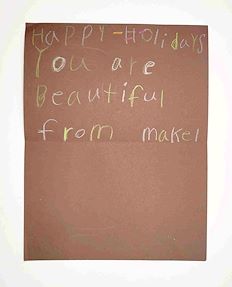 HAPPY-HOlidAYS
You are
Beautiful
from makel